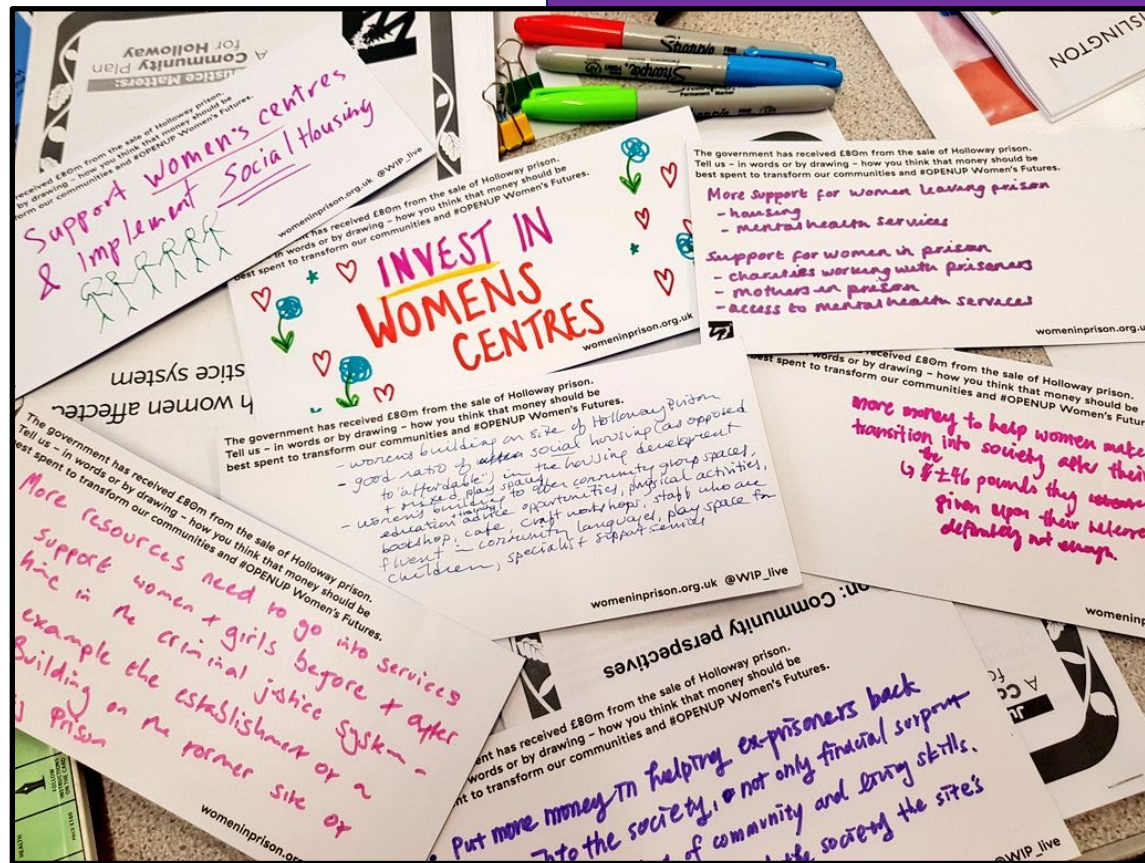 Justice Matters:
A Community Plan
for Holloway
received £80m from the sale of Holloway prison.
by drawing – how you think that money should be
form our communities and #OPENUP Women's Futures.
Support women's centres
& Implement Social Housing
womeninprison.org.uk @WIP_live
Sharpie
Sharpie
ISLINGTON
has received £80m from the sale of Holloway prison.
in words or by drawing – how you think that money should be
best spent to transform our communities and #OPENUP Women's Futures.
INVEST IN
WOMENS
CENTRES
womeninprison.org.uk
The government has received £80m from the sale of Holloway prison.
Tell us – in words or by drawing – how you think that money should be
best spent to transform our communities and #OPENUP Women's Futures.
More support for women leaving prison
- housing
- mental health services
Support for women in prison
- charities working with prisoners
- mothers in prison
- access to mental health services
womeninprison.org.u
stice system
h women affected
The government has received £80m from the sale of Holloway prison.
Tell us – in words or by drawing – how you think that money should be
best spent to transform our communities and #OPENUP Women's Futures.
- women's building on site of Holloway Prison
- good ratio of social housing (as opposed
to 'affordable') in the housing development
+ play space
- women's building to offer community group spaces,
education + training advice opportunities, physical activities,
bookshop, cafe, craft workshops, staff who are
fluent in community languages, play space for
children, specialist support service
womeninprison.org.uk @WIP_live
received £80m from the sale of Holloway prison.
words or by drawing – how you think that money should be
est spent to transform our communities and #OPENUP Women's Futur
more money to help women make
transition into society after their
the ±46 pounds they
given upon their release
definitely not enough.
womeninp
The government has received £80m from the sale of Holloway prison.
Tell us – in words or by drawing – how you think that money should be
best spent to transform our communities and #OPENUP Women's Futures.
More resources need to go into services
support women + girls before + after
time in the criminal justice system -
example the establishment of a
Building on the former site of
Prison
womeninprison.or
on: Community perspectives
ent has received £80m from the sale of Holloway prison.
words or by drawing – how you think that money should be
nt to transform our communities and #OPENUP Women's Futures.
Put more money in helping ex-prisoners back
into the society, not only financial support
of community and living skills.
society the site's
WIP_live